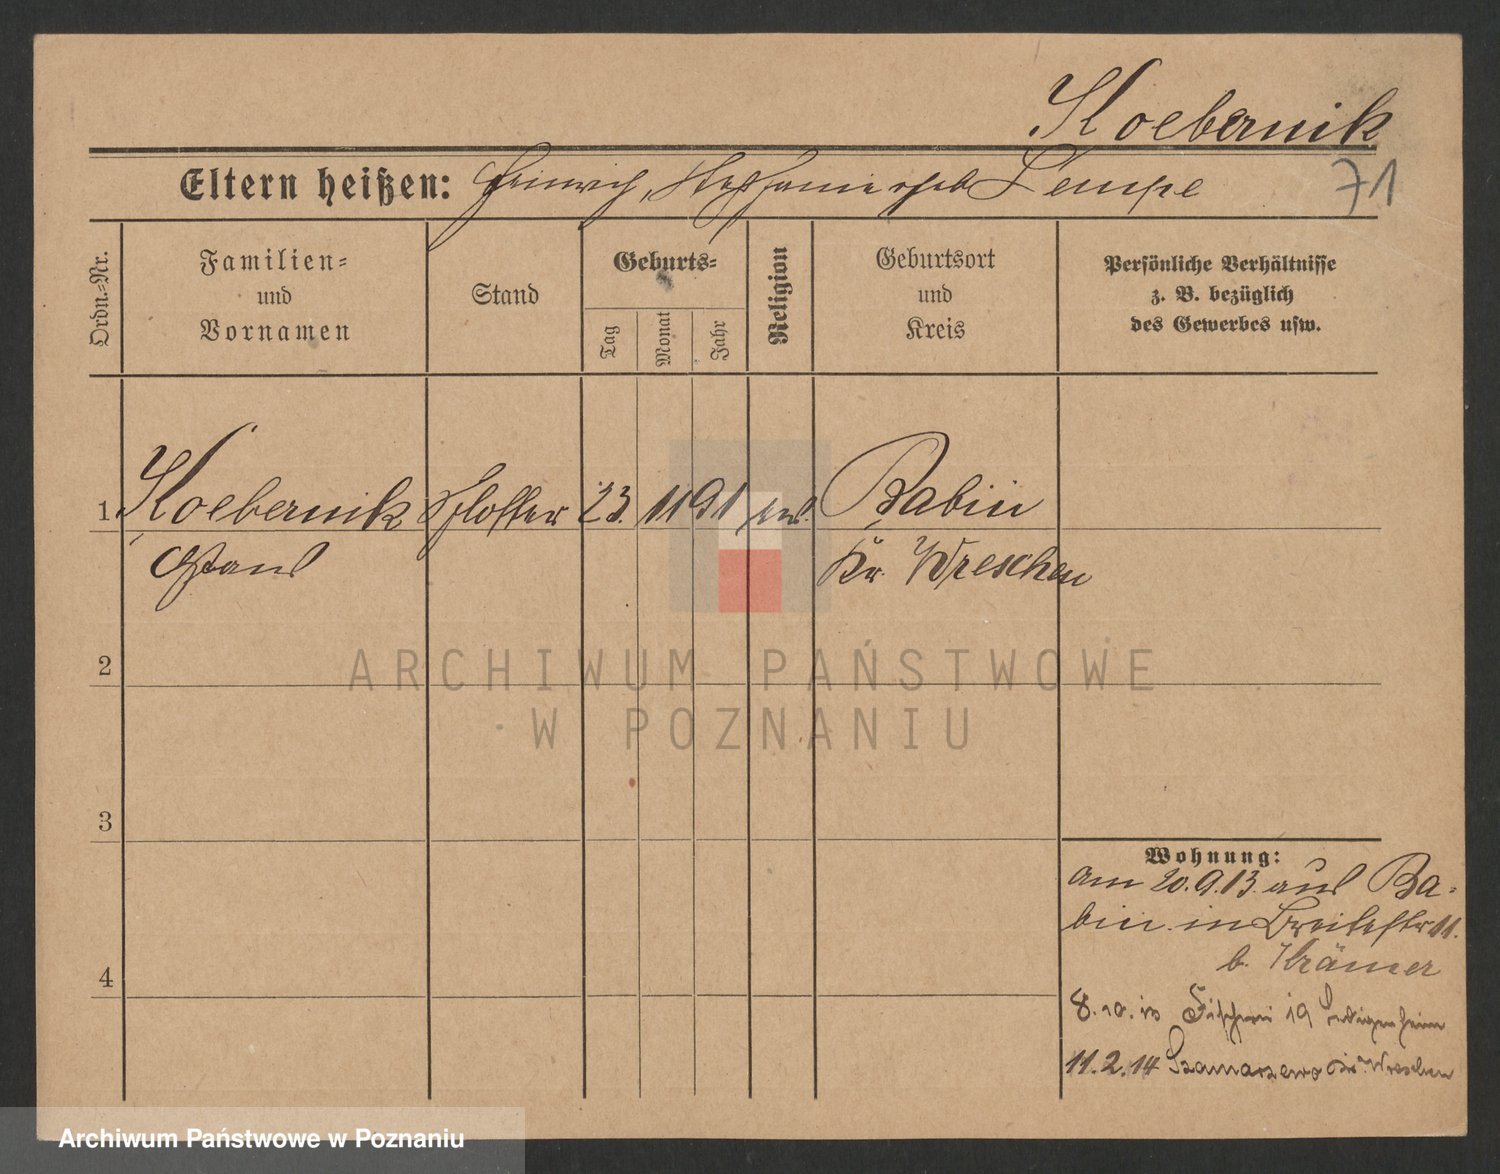 Kloebernik
71
Eltern heißen: Heinrich, Stephanie geb Lempe
Ordn.-Nr.
Familien-
und
Vornamen
Stand
Geburts-
Tag
Monat
Jahr
Religion
Geburtsort
und
Kreis
Persönliche Verhältnisse
z. B. bezüglich
des Gewerbes usw.
1 Kloebernik Schlosser 23. 11 91 Babin
Kr. Wreschen
2
ARCHIWUM PAŃSTWOWE
W POZNANIU
3
Wohnung:
am 20.9.13. aus Ba-
bin in Breitestr 11.
b. Krämer
4
8.10.13 Fischerei 19 Ledigenheim
11.2.14 Szamarzewo Kr. Wreschen
Archiwum Państwowe w Poznaniu